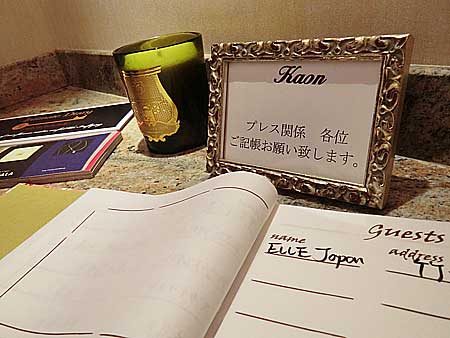 Kaon
プレス関係 各位
ご記帳お願い致します。
Guests
name address
ELLE Japon